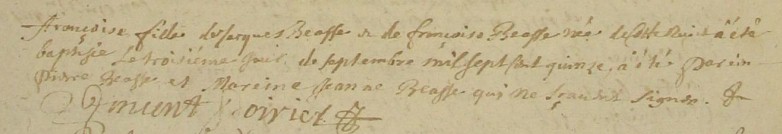 françoise fille de Jacques Beasse & de françoise Beasse née de cette nuit a été
baptisée le troisiéme jour de septembre mil sept cent quinze, a été parein
pierre Beasse et Mareine jeanne Beasse qui ne sçauent signér.